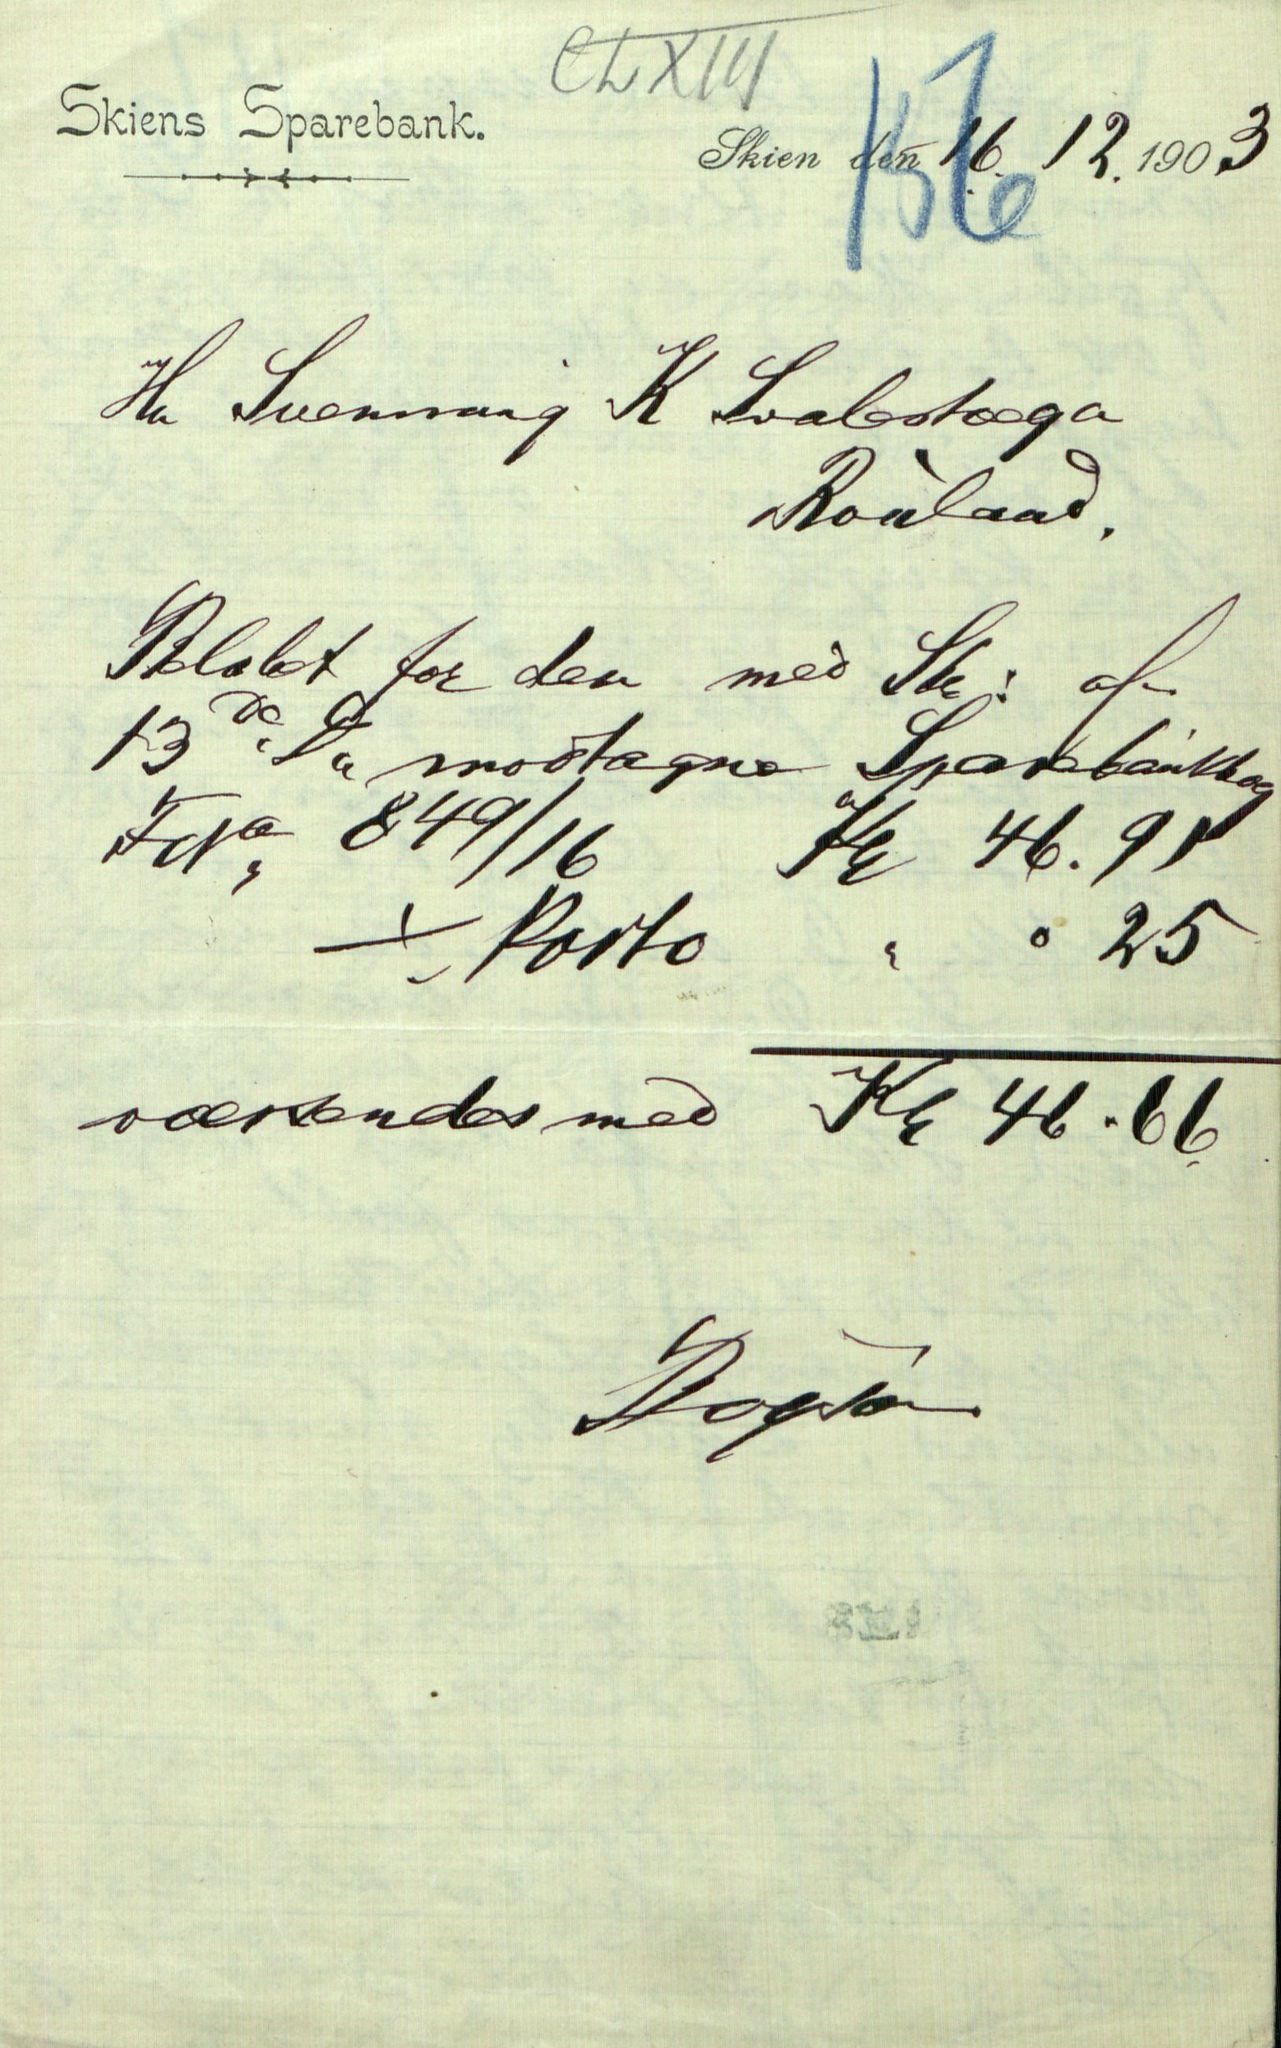 CLXIII
Skiens Sparebank.
156
Skien den 16. 12. 1903
Hr Svennung K Svalestoga
Rauland.
Beløbet for den med Skr: af
13 de ds. modtagne Sparebankbog
849/16 Kr 46.91
Porto " " 25
oversendes med Kr 46.66